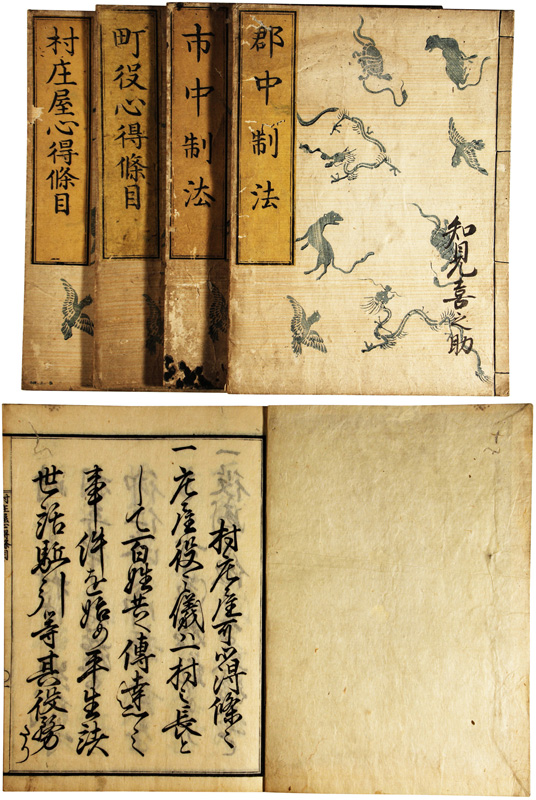 知見喜之助
郡中制法
市中制法
町役心得條目
村庄屋心得條目
村庄屋可心得條々
一庄屋役之儀ハ一村之長と
して百姓共へ傳達之
事件を始め平生諸
世話駈引等其役
村庄屋心得條目